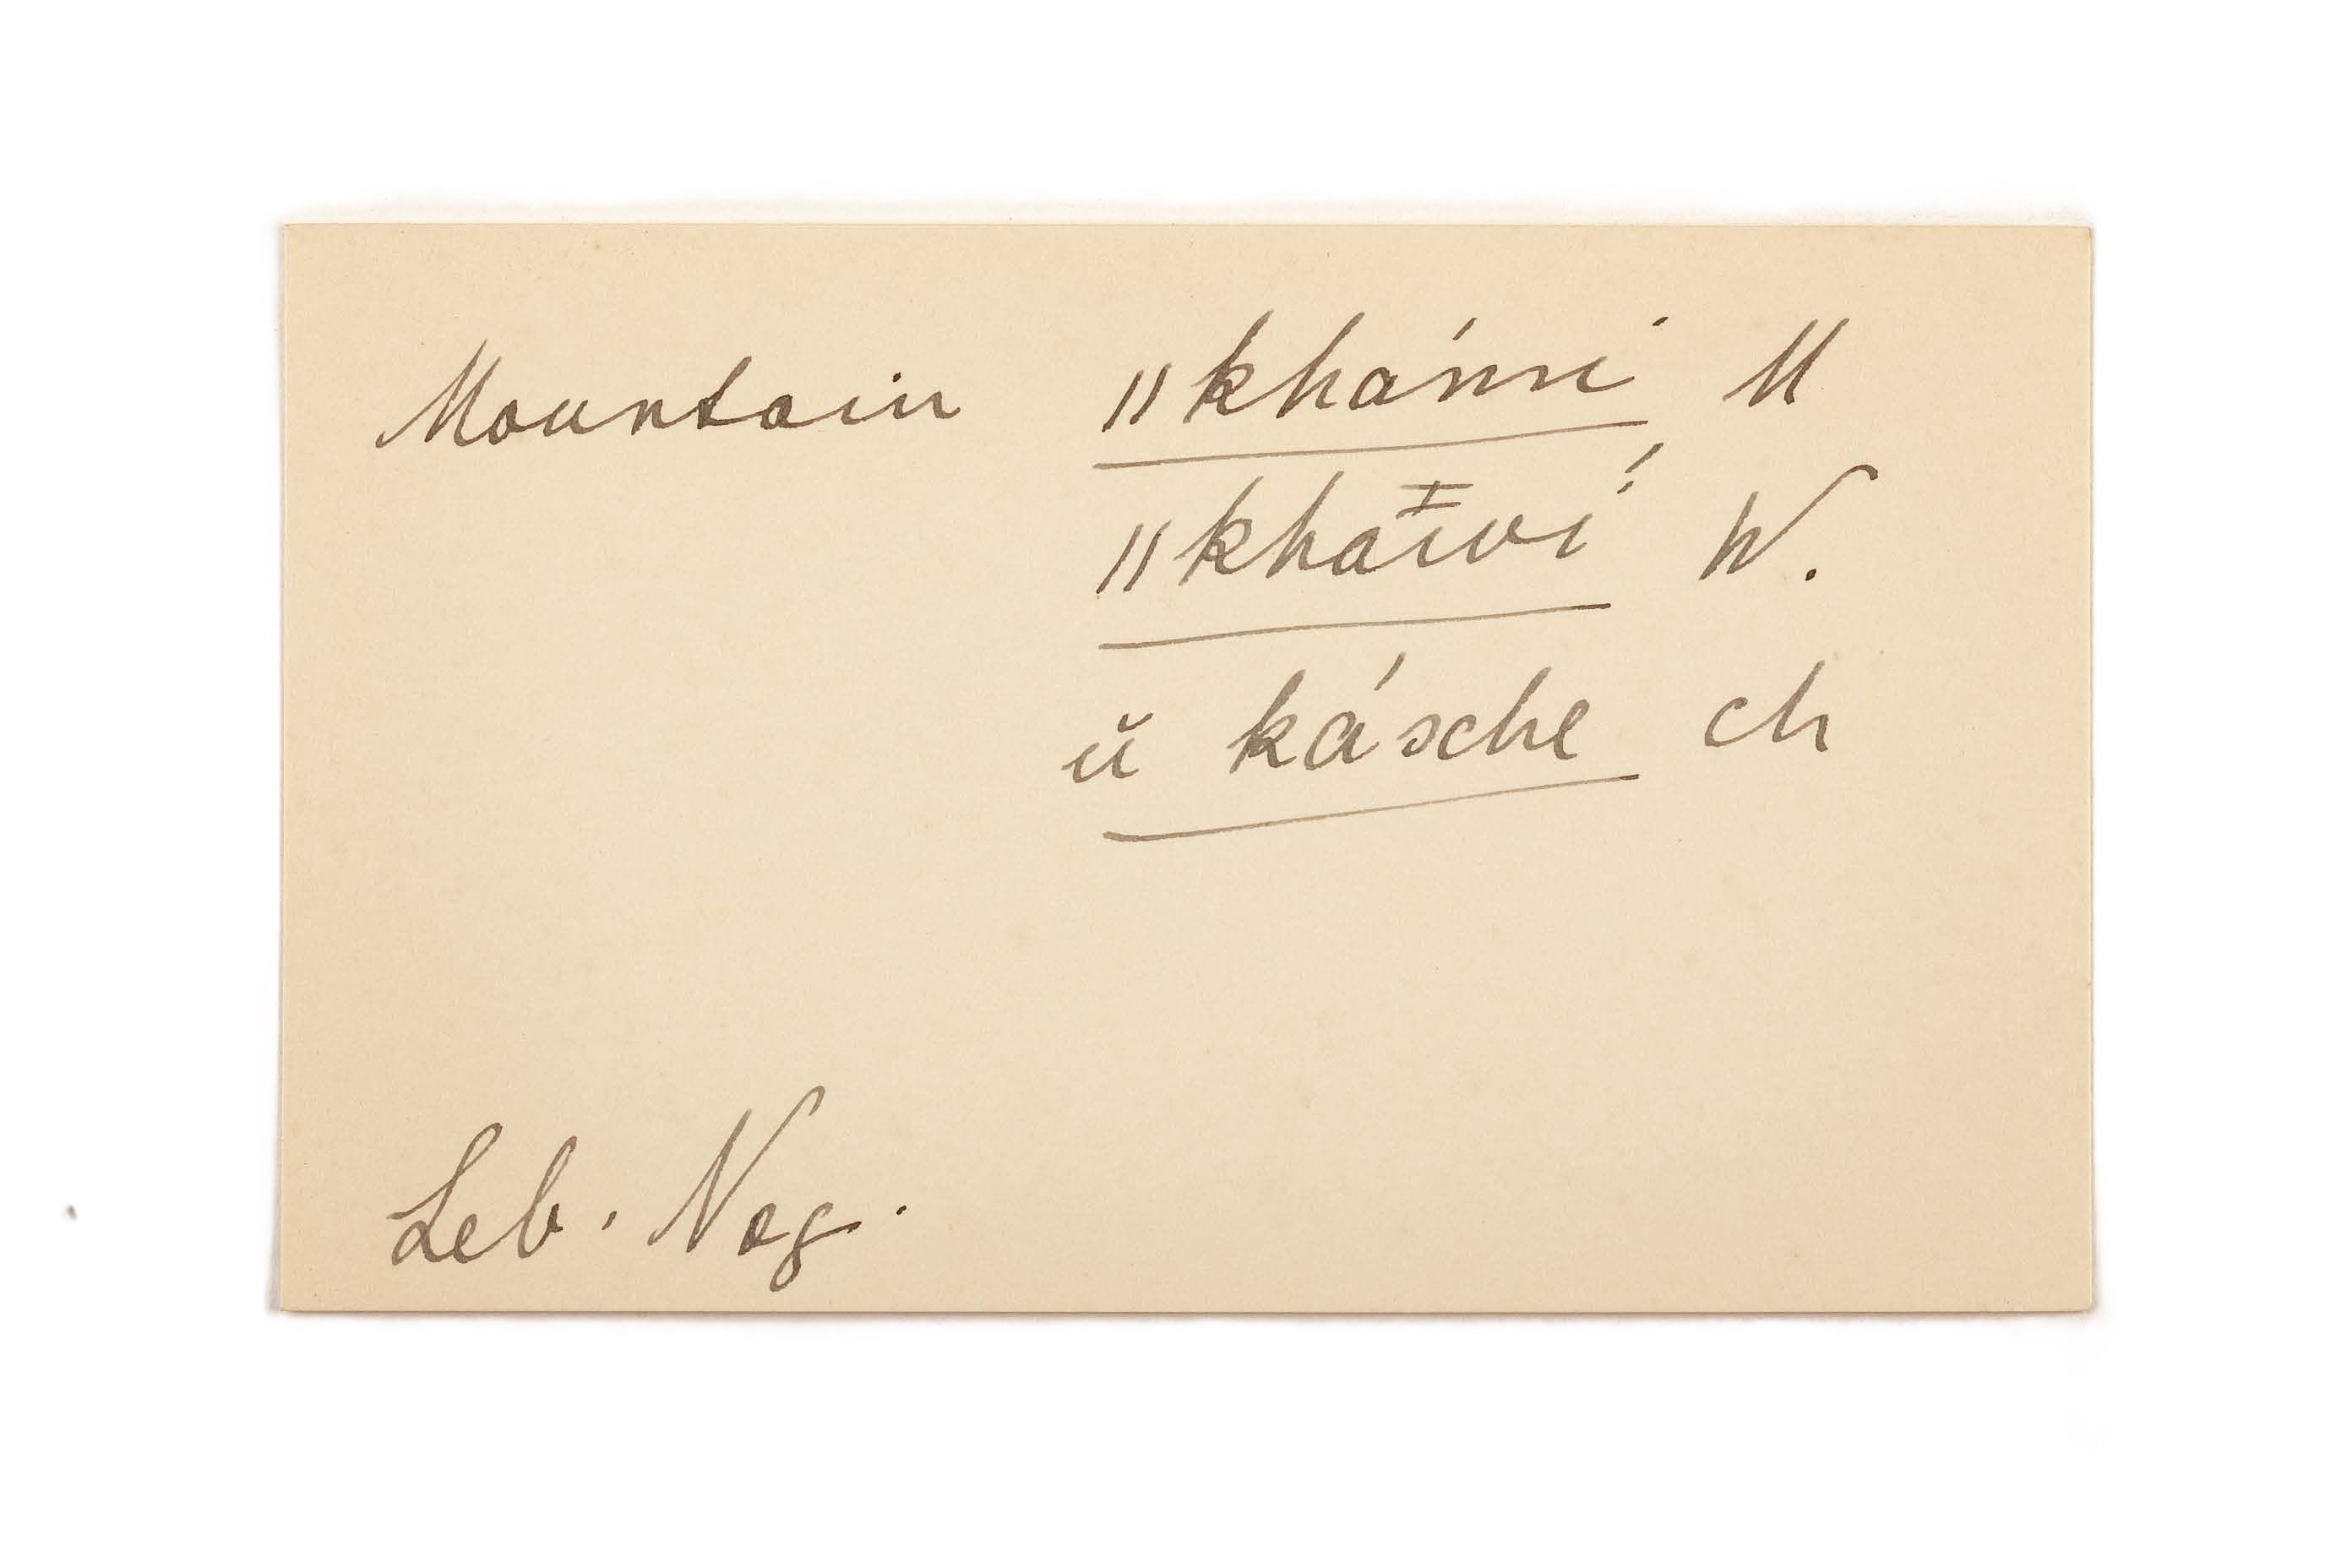 Mountain ǁkhánni M
ǁkhaīví W.
ŭ kásche ch
Leb. Nog.